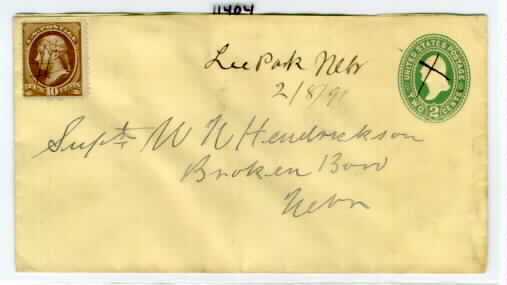 11404
10
Lee Park Nebr
2/8/91
UNITED STATES POSTAGE
2
TWO CENTS
Supt. W N Hendrickson
Broken Bow
Nebr